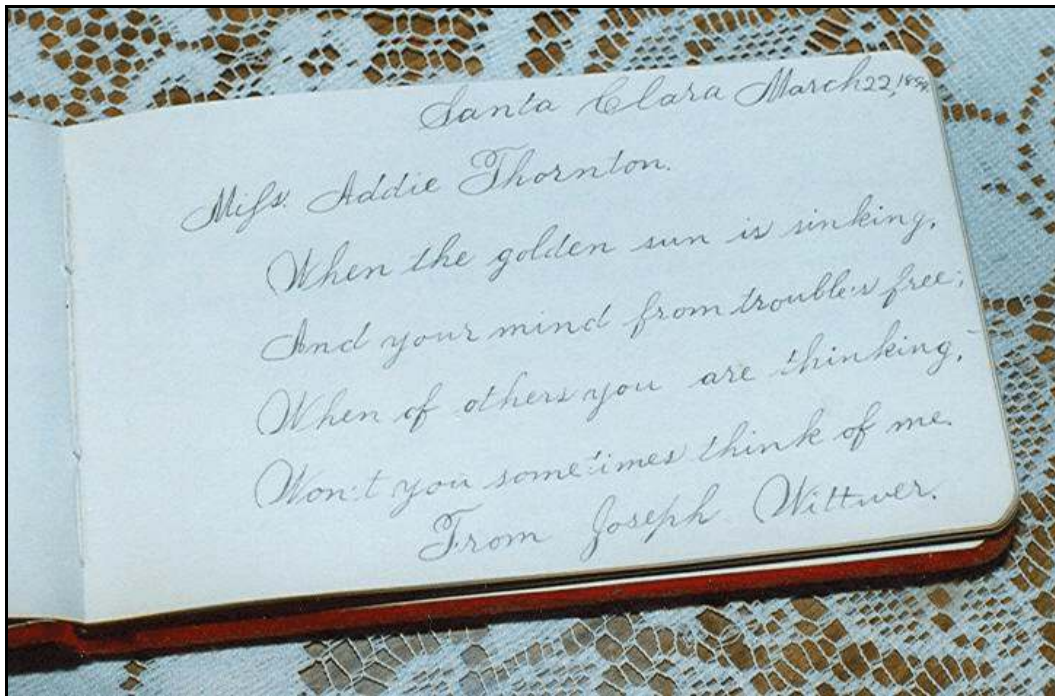 Santa Clara March 22,
Miss. Addie Thornton.
When the golden sun is sinking,
And your mind from troubles free;
When of others you are thinking,
Won't you sometimes think of me.
From Joseph Wittwer.